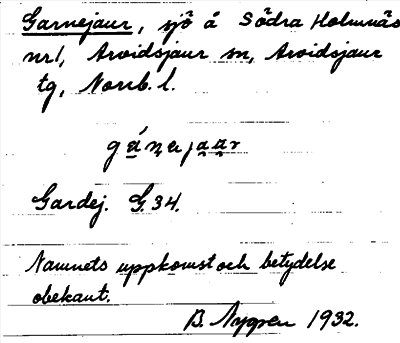 Garnejaur, sjö å Södra Holmnäs
nr 1, Arvidsjaur sn, Arvidsjaur
tg, Norrb. l.
Gardej. G. 34.
Namnets uppkomst och betydelse
obekant.
B. Nygren 1932.